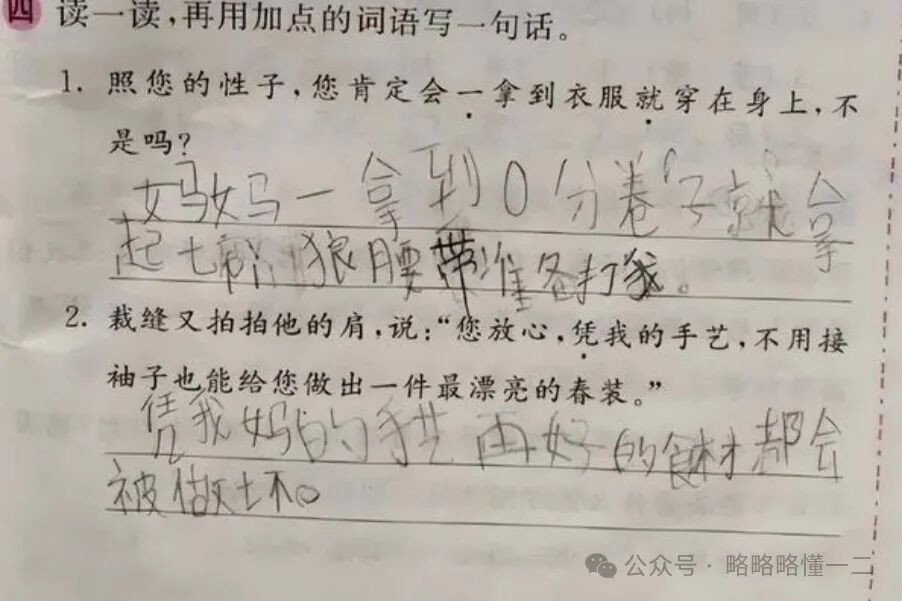 四 读一读,再用加点的词语写一句话。
1. 照您的性子,您肯定会一拿到衣服就穿在身上,不
是吗?
妈妈一拿到0分卷子就拿
起七狼腰带准备打我。
2. 裁缝又拍拍他的肩,说:“您放心,凭我的手艺,不用接
袖子也能给您做出一件最漂亮的春装。”
凭我妈的手艺再好的食材都会
被做坏。
公众号·略略略懂一二